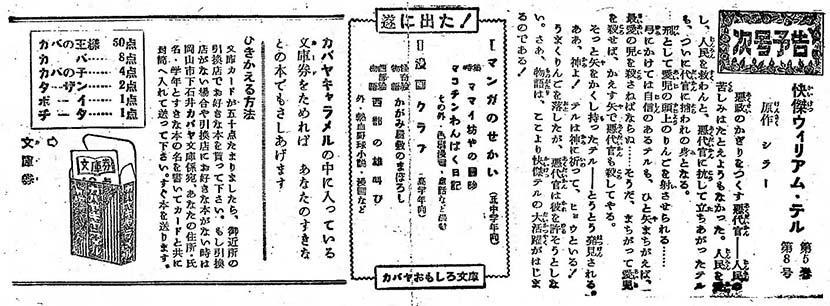 次号予告
快傑ウィリアム・テル
第5巻
第8号
原作 シラー
悪政のかぎりをつくす悪代官――人民の
苦しみはたとえようもなかった。人民を愛
し、人民を救わんと、悪代官に抗して立ちあがったテル
も、ついに代官に捕われの身となる。
刑として愛児の頭上のりんごを射させられる……
弓にかけては自信のあるテルも、ひと矢まちがえば、
最愛の児を殺さねばならぬ……そうだ、まちがって愛児
を殺せば、かえす矢で代官も殺してやる。
そっと矢をかくし持ったテル――とうとう発見される。
ああ、神よ！ テルは神に祈って、ヒョウといる！
うまくりんごを落したが、悪代官は彼を許そうとしな
い。さあ、物語は、ここより快傑テルの大活躍がはじま
るのである！
遂に出た！
マンガのせかい
ママイ坊やの冒険
マコチンわんぱく日記
漫画クラブ
かがみ屋敷のまぼろし
西部の雄叫び
外・熱血野球小説・漫画など
カバヤおもしろ文庫
カバヤキャラメルの中に入っている
文庫券をためれば あなたのすきな
どの本でもさしあげます
ひきかえる方法
文庫カードが五十点たまりましたら、御近所の
引換店でお好きな本を貰って下さい。もし引換
店がない場合や引換店にお好きな本がない時は
岡山市下石井カバヤ文庫係宛、あなたの住所・氏
名・学年とすきな本の名を書いてカードと共に
封筒へ入れて送って下さい。すぐ本を送ります。
カバの王様 50点
カバ 8点
カバの子 4点
ターザン 2点
ボーイ 1点
チータ 1点
文庫券
文庫券